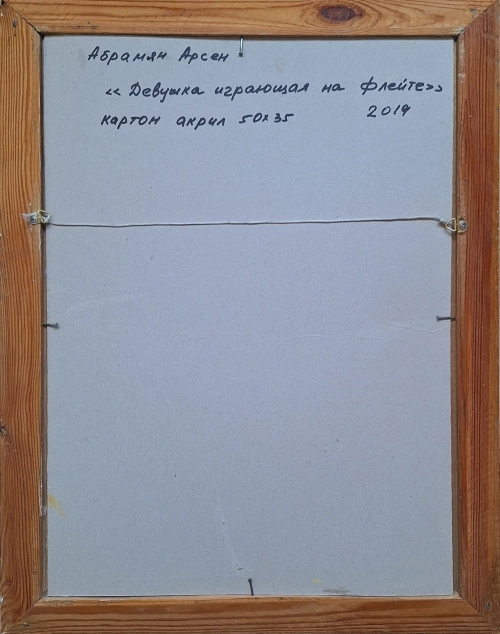 Абрамян Арсен
«Девушка играющая на флейте»
картон акрил 50x35 2019